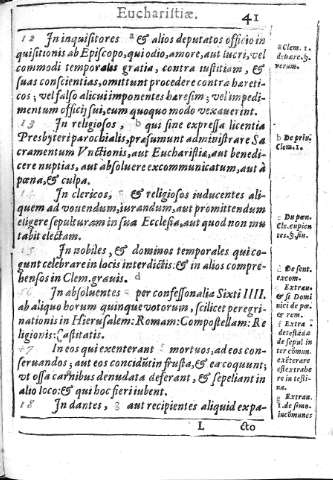 Eucharistiæ. 41
12 In inquisitores a & alios deputatos officio in
quisitionis ab Episcopo, qui odio, amore, aut lucri, vel
commodi temporalis gratia, contra iustitiam, &
suas conscientias, omittunt procedere contra hæreti-
cos; vel falso alicui imponentes hæresim; vel impedi-
mentum officij sui, cum quoquo modo vexaverint.
13 In religiosos, b qui sine expressa licentia
Presbyteri parochialis, præsumunt administrare Sa
cramentum Vnctionis, aut Eucharistiæ, aut benedi-
cere nuptias, aut absoluere excommunicatum, aut à
pœna, & culpa.
14 In clericos, & religiosos inducentes ali-
quem ad vouendum, iurandum, aut promittendum
eligere sepulturam in sua Ecclesia, aut quod non mu
tabit electam.
15 In nobiles, & dominos temporales qui co-
gunt celebrare in locis interdictis: & in alios compre-
hensos in Clem. grauis. d
16 In absoluentes per confessonalia Sixti IIII.
ab aliquo horum quinque votorum, scilicet peregri-
nationis in Hierusalem: Romam: Compostellam: Re
ligionis: Castitatis.
17 In eos qui exenterant mortuos, ad eos con-
seruandos; aut eos concidũt in frusta, & ea coquunt;
vt ossa carnibus denudata deferant, & sepeliant in
alio loco: & qui hoc fieri iubent.
18 In dantes, aut recipientes aliquid expa-
L cto
a Clem. 1.
de hæret. §.
verum.
b De priu.
Clem. 1.
De pœn.
Cle. cupien
tes. § sin.
De sent.
excom.
Extrau.
& si Domi
nici de pœ.
& rem.
Extra
detestãdæ
de sepul in
ter commun.
Extrau.
1. de simo.